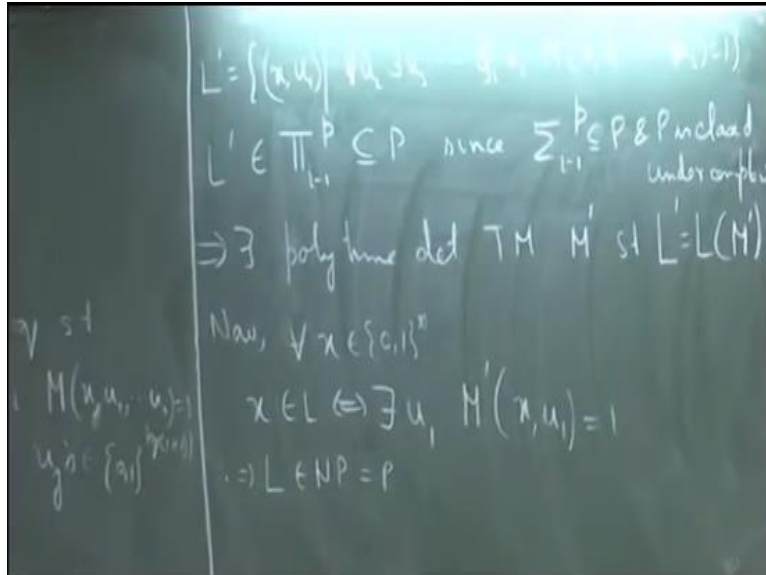 q st
M(x, u₁, ... u_i)=1
u_j's ∈ {0,1}
L' = {(x, u₁) | ∀u₂ ∃u₃
L' ∈ Π^p_{i-1} ⊆ P since Σ^p_{i-1} ⊆ P & P is closed
under
⇒ ∃ poly time det TM M' st L' = L(M')
Now, ∀ x ∈ {0,1}*
x ∈ L ⇔ ∃ u₁ M'(x, u₁) = 1
⇒ L ∈ NP = P